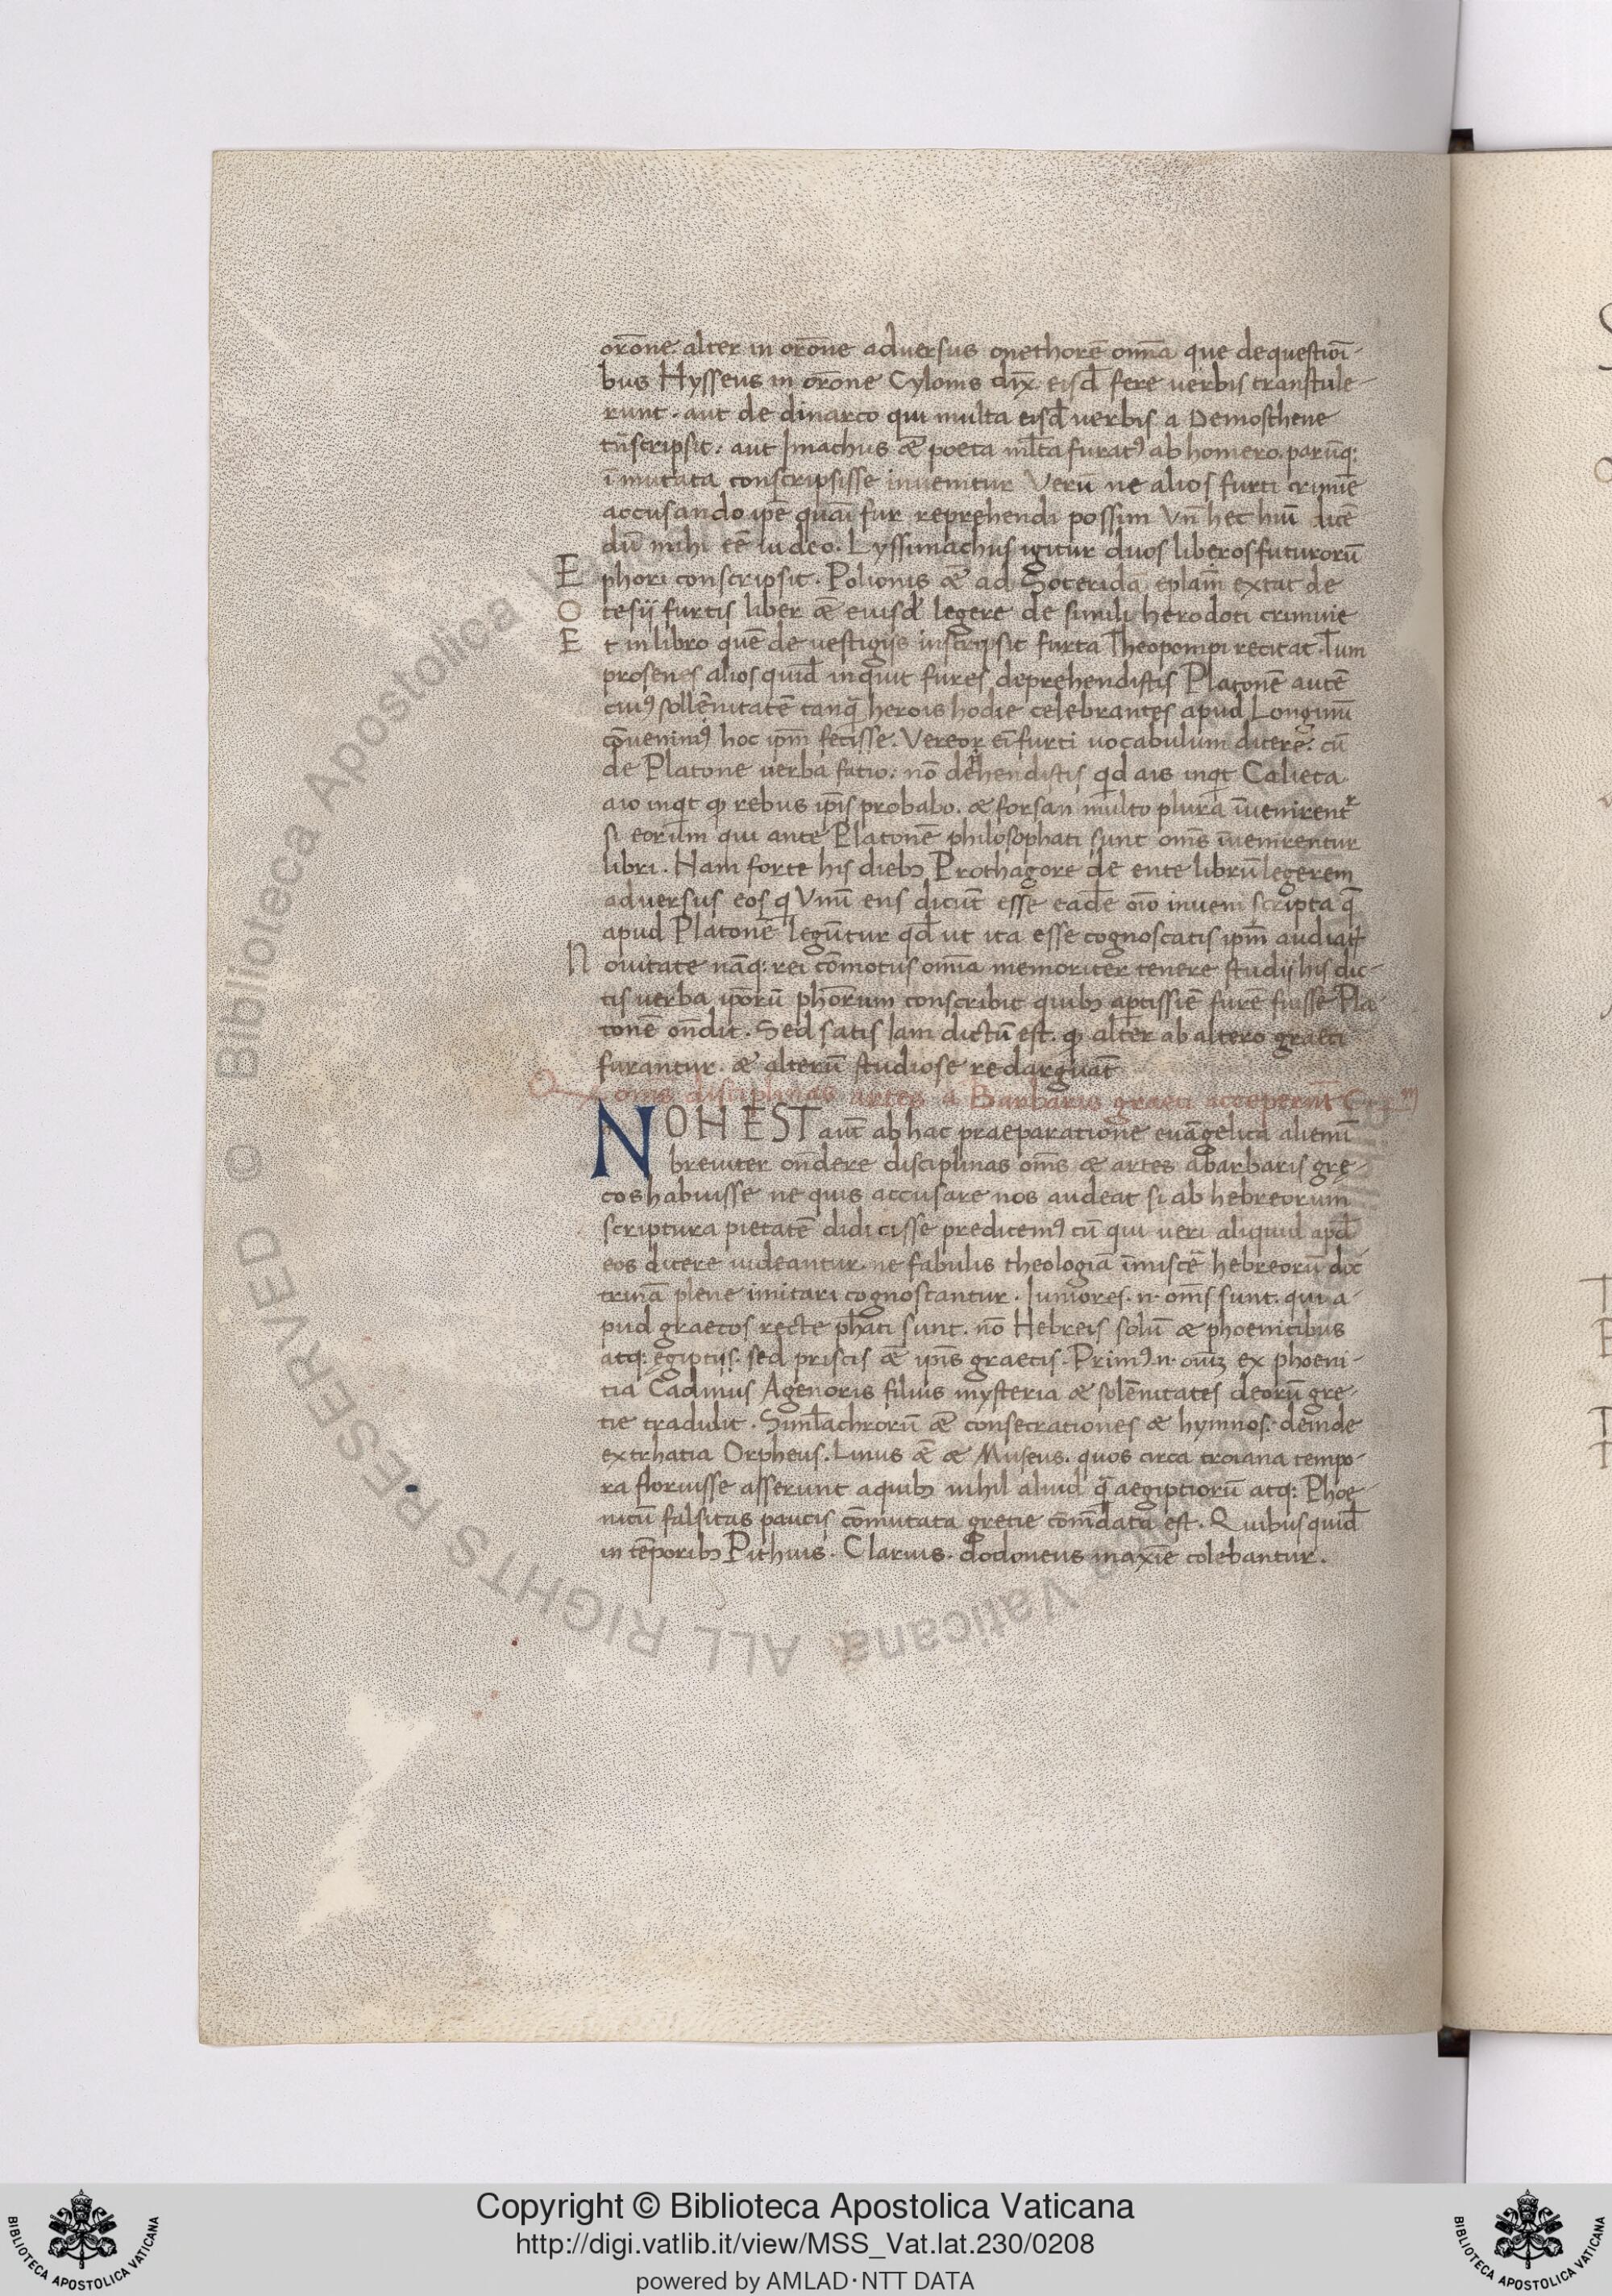 or̄one. alter in or̄one adversus onethorē omn̄a que de questioī-
bus Hysseus in or̄one Cylonis dix̄. eisd̄ fere verbis transtule-
runt. aut de dinarco qui multa eisd̄ verbis a Demosthene
tn̄scripsit. aut Imachus ǣ poeta ml̄ta furatꝰ ab homero. parūq:
ī mutata conscripsisse invenitur Verū ne alios furti crimīe
accusando ip̄e quasi fur reprehendi possim Vn̄ hec hiū dicē
dū mihi eē uideo. Lyssimachus igitur duos liberos futurorū
E phori conscripsit. Polionis ǣ ad Soterida epl̄am extat de
O tesij furtis liber ǣ euisd̄ legere de simili herodoti crimine
E t in libro quē de vestigijs inscripsit furta Theopompi recitat. Tum
prosenes alios quid̄ inquit fures deprehendistis Platonē autē
cuiꝰ sollēnitatē tanq̄ herois hodie celebrantes apud Longinū
cōvenimꝰ hoc ip̄m fecisse. Vereor ei furti vocabulum dicere. cū
de Platone verba facio: nō dep̄hendistis qd ais inqt Calieta
aio inqt qꝫ rebus ip̄is probabo. æ forsan multo plura īvenirent᷑
si eorum qui ante Platonē philosophati sunt om̄s īvenirentur
libri. Nam forte his dieb; Prothagore de ente librū legerem
adversus eos q Vnū ens dicūt esse eadē oīo inveni scripta q̄
apud Platonē legūtur qd̄ ut ita esse cognoscatis ip̄m audiatꝭ
N ovitate nāq: rei cōmotus omīa memoriter tenere studij his dic-
tis verba ip̄orū ph̄orum conscribit quib; aptissiē furē fuisse Pla
tonē on̄dit. Sed satis Iam dictū est. qꝫ alter ab altero graeci
furantur. æ alterū studiose redarguāt
Q om̄s disciplinas artes a Barbaris graeci acceperūt C
NON EST aut̄ ab hac praeparatione euāgelica alienū
breviter on̄dere disciplinas om̄s æ artes a barbaris gre-
cos habuisse ne quis accusare nos audeat si ab hebreorum
scriptura pietatē didicisse predicemꝰ cū qui veri aliquid apd̄
eos dicere videantur. ne fabulis theologiā īmiscē hebreorū doc
trinā plene imitari cognoscantur. Iuniores. n. om̄s sunt. qui a-
pud graecos recte ph̄ati sunt. nō Hebreis solū æ phoenicibus
atq: egiptijs. sed priscis ǣ ip̄is graecis. Primꝰ. n. oīuꝫ ex phoeni-
tia Cadmus Agenoris filius mysteria æ solēnitates deorū gre-
tie tradulit. Siml̄achrorū ǣ consecrationes æ hymnos. deinde
extrhatia Orpheus. Linus ǣ æ Museus. quos circa troiana tempo-
ra floruisse asserunt a quib; nihil aliud q̄ aegiptiorū atq: Phoe-
nicū falsitas paucis cōmutata gretie com̄data est. Quibus quid̄
in tēporib; Pithius. Clarius. dodoneus maxīe colebantur.
Copyright © Biblioteca Apostolica Vaticana
http://digi.vatlib.it/view/MSS_Vat.lat.230/0208
powered by AMLAD·NTT DATA